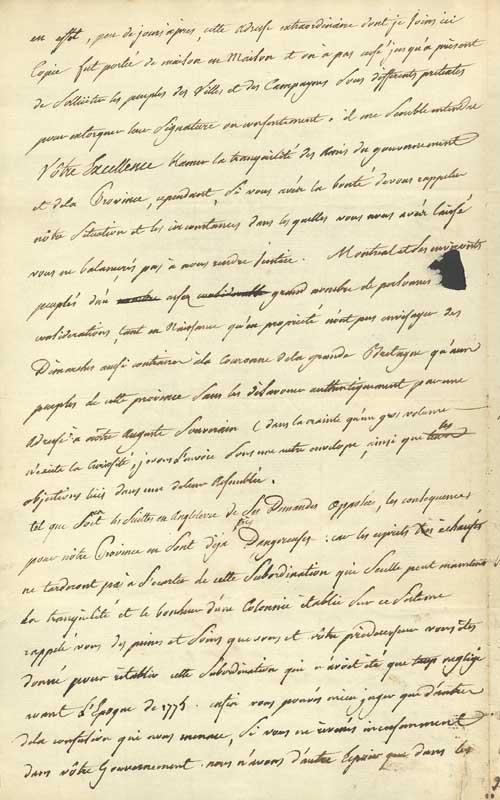 en effet, peu de jours apres, cette adresse extraordinaire dont je joins ici
Copie fut portée de maison en Maison et on a pas cessé jusqu'a présent
de Solliciter les peuples des Villes et des Campagnes Sous differents pretextes
pour extorquer leur Signature ou consentement. il me Semble entendre
Vôtre Excellence blamer la tranquilité des Amis du gouvernement
et dela Province, cependant, Si vous avéz la bonté de vous rappeler
nôtre Situation et les circonstances dans les quelles vous nous avéz laissé
vous ne balancerés pas a nous rendre Justice. Montreal et Ses environs
peuplés d'un assez considerable grand nombre de personnes
considerations, tant en Naissance qu'en propriété n'ont pas envisager des
Demarches aussi contraires à la couronne dela grande Bretagne qu'aux
peuples de cette province Sans les désavouer authentiquement par une
Adresse à nôtre Auguste Souverain (dans la crainte qu'un gros volume
n'excite la Curiosité, je vous l'envoie Sous une autre envelope, ainsi que les
objections lües dans une de leur Assemblée.
tel que Soit les Suittes en Angleterre de Ses Demandes Opposées, les consequences
pour nôtre Province en Sont déja très Dangereuses: car les esprits échauffés
ne tarderont pas à S'ecarter de cette Subordination qui Seulle peut maintenir
La tranquilité et le bonheur d'une Colonnie établie Sur ce Sisteme
rappelé vous des peines et Soins que vous et vôtre prédecesseur vous êtes
donné pour rétablir cette Subordination qui n'avoit été que trop negligé
avant L'Epoque de 1775. enfin vous pouvés mieu juger que d'autre
dela confusion qui nous menace, Si vous ne revenés incessamment
dans vôtre Gouvernement. nous n'avons d'autre Espoir que dans les